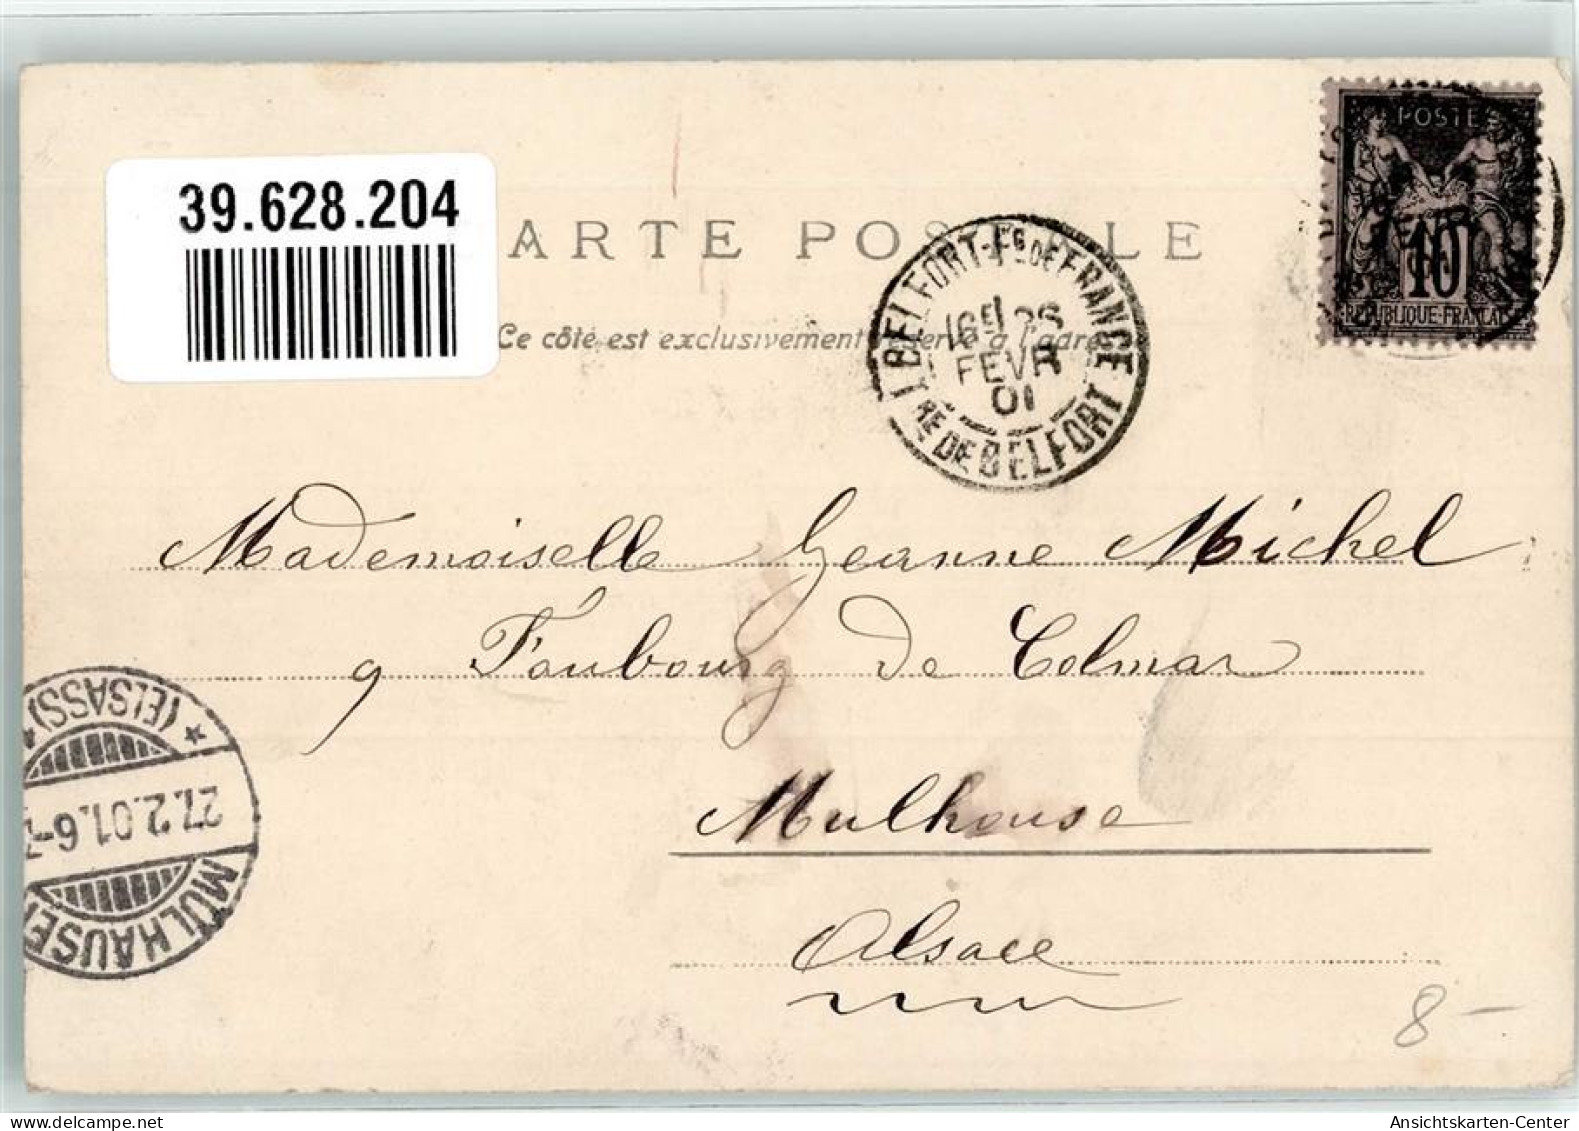 39.628.204
ARTE POSTALE
Ce côté est exclusivement réservé à l'adre
BELFORT-Fg DE FRANCE
16E 26
FEVR
01
Tre DE BELFORT
POSTE
FEVR
10
REPUBLIQUE FRANÇAI
Mademoiselle Jeanne Michel
9 Faubourg de Colmar
Mulhouse
Alsace
(ELSASS)
27.2.01.6-7
MÜLHAUSE
8-
Ansichtskarten-Center